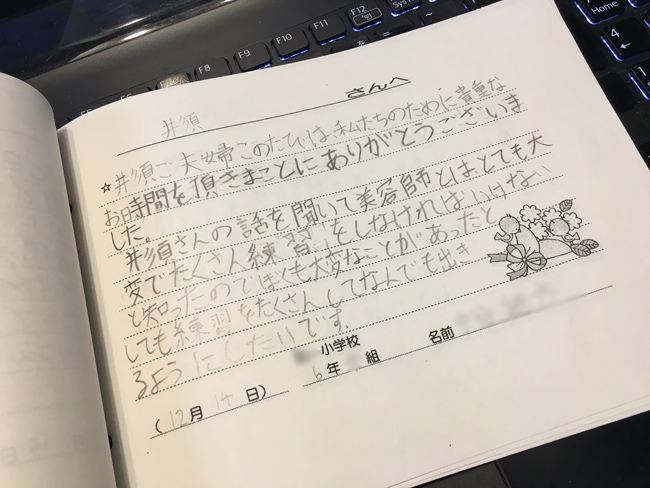 Home
F12
F11
F10
F9
F8
4
井須 さんへ
☆井須ご夫婦このたびは、私たちのために貴重な
お時間を頂きまことにありがとうございま
した。
井須さんの話を聞いて美容師とは、とても大
変でたくさん練習をしなければいけない
と知ったのでぼくも大変なことがあったと
しても練習をたくさんしてなんでも出き
るようにしたいです。
小学校
(12月14日) 6年 組 名前